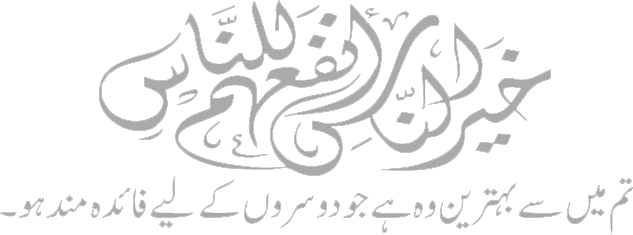 خير الناس أنفعهم للناس
تم میں سے بہترین وہ ہے جو دوسروں کے لیے فائدہ مند ہو۔